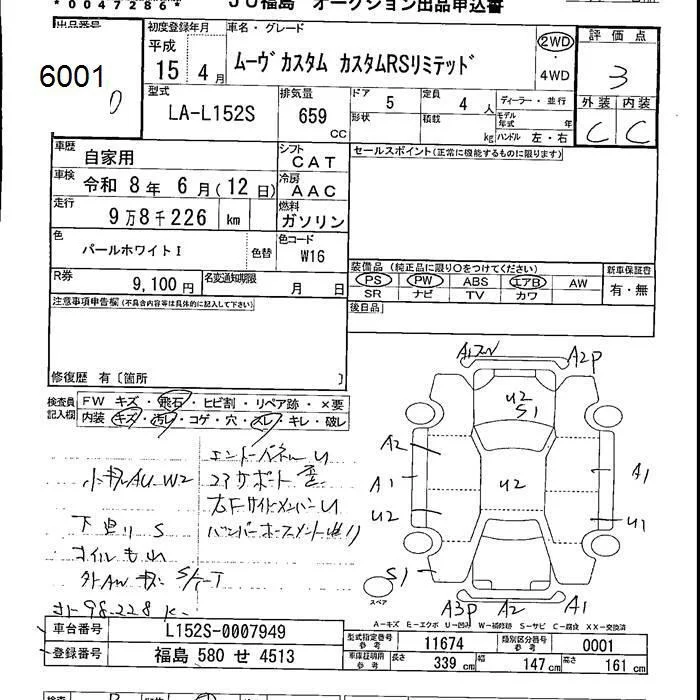 *0047286*
JU福島 オークション出品申込書
出品番号
6001
0
初度登録年月
平成
15年 4月
車名・グレード
ムーヴカスタム カスタムRSリミテッド
2WD
・4WD
評価点
3
型式
LA-L152S
排気量
659
CC
ドア
5
定員
4 人
形状
積載
kg
ディーラー・並行
モデル年式 年
ハンドル 左・右
外装 内装
C C
車歴
自家用
シフト
CAT
セールスポイント(正常に機能するものに限ります)
車検
令和 8年 6月(12日)
冷房
AAC
走行
9万8千226 km
燃料
ガソリン
色
パールホワイトI
色替
色コード
W16
R券
9,100円
名変通知期限
月 日
装備品 (純正品に限り○をつけてください)
PS PW ABS エアB AW
SR ナビ TV カワ
新車保証書
有・無
後日品
注意事項申告欄(不具合内容等は具体的に記入して下さい)
修復歴 有〔箇所 〕
検査員記入欄
FW キズ・飛石・ヒビ割・リペア跡・×要
内装 キズ・汚れ・コゲ・穴・スレ・キレ・破レ
小キズAU W2
下回リ S
オイルもれ
外AW キズ
エンドパネルU
右FサイドメンバーU
A2P
U2
S1
A2
A1
U2
U2
A1
U1
S1
A3P A2 A1
スペア
A-キズ E-エクボ U-凹み W-補修跡 S-サビ C-腐食 XX-交換済
車台番号
L152S-0007949
登録番号
福島 580 せ 4513
型式指定番号 参考
11674
類別区分番号 参考
0001
車庫証明用 参考
長さ 339 cm 幅 147 cm 高さ 161 cm